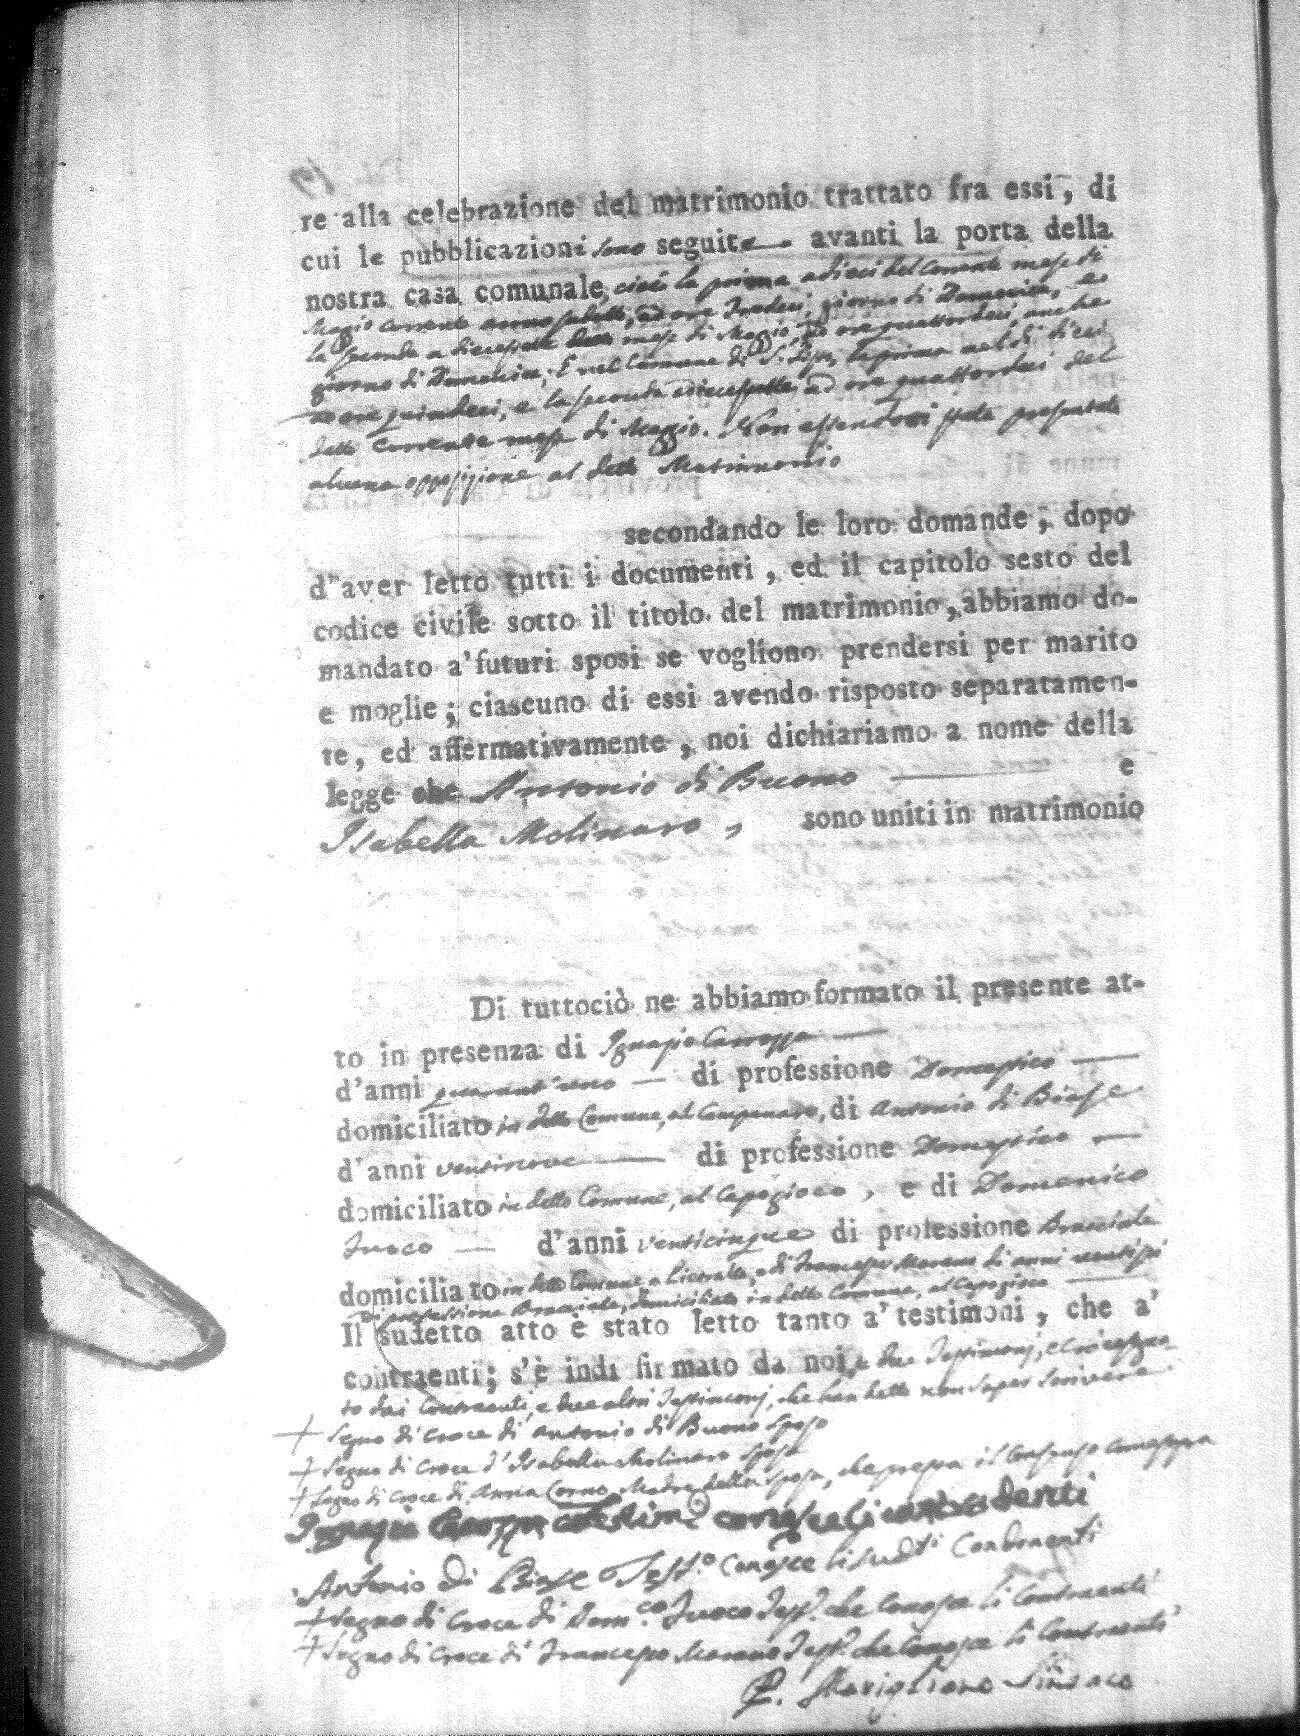 re alla celebrazione del matrimonio trattato fra essi, di
cui le pubblicazioni sono seguite avanti la porta della
nostra casa comunale, cioè la prima a dieci del corrente mese di
Maggio corrente anno ad ore tredeci, giorno di Domenica, e
la seconda a diecesette detto mese di Maggio ad ore quattordeci, anche
giorno di Domenica; E nel Comune di la prima nel dì dieci
ad ore quindeci, e la seconda a diecesette ad ore quattordeci del
detto corrente mese di Maggio. Non essendosi stata presentata
alcuna opposizione al detto Matrimonio
secondando le loro domande; dopo
d'aver letto tutti i documenti, ed il capitolo sesto del
codice civile sotto il titolo del matrimonio, abbiamo do-
mandato a' futuri sposi se vogliono prendersi per marito
e moglie; ciascuno di essi avendo risposto separatamen-
te, ed affermativamente, noi dichiariamo a nome della
legge che Antonio di Buono e
Isabella Molinaro, sono uniti in matrimonio
Di tuttociò ne abbiamo formato il presente at-
to in presenza di Ignazio
d'anni quarant'uno di professione Domestico
domiciliato in detto Comune, al Campanaro, di Antonio di Biase
d'anni ventinove di professione Domestico
domiciliato in detto Comune, al Capogioco, e di Domenico
Fuoco d'anni venticinque di professione Bracciale
domiciliato in detto Comune a e di Francesco Morano di anni ventisei
di professione Bracciale, domiciliato in detto Comune, al Capogioco
Il sudetto atto è stato letto tanto a' testimoni, che a'
contraenti; s'è indi firmato da noi, e due Testimonj, e Croce segna-
to dai Contraenti, e due altri Testimonj, che han detto non saper scrivere
+ Segno di Croce di Antonio di Buono sposo
+ Segno di Croce d'Isabella Molinaro sposa
+ Segno di Croce di Anna Corno Madre della sposa, che presta il consenso come sopra
Ignazio testimo conosce li contradenti
Antonio di Biase Test.o Conosce li sud.ti Contraenti
+ Segno di Croce di Dom.co Fuoco Test.o che conosce li Contraenti
+ Segno di Croce di Francesco Morano Test.o che conosce li Contraenti
P. Marigliano Sindaco